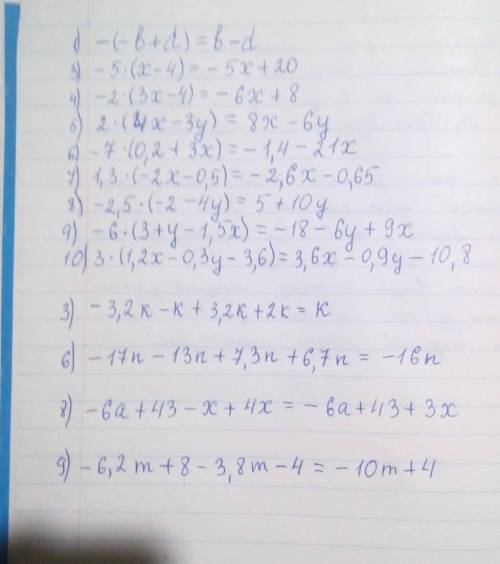 1) -(-b+d) = b-d
3) -5·(x-4) = -5x+20
4) -2·(3x-4) = -6x+8
5) 2·(4x-3y) = 8x-6y
6) -7·(0,2+3x) = -1,4-21x
7) 1,3·(-2x-0,5) = -2,6x-0,65
8) -2,5·(-2-4y) = 5+10y
9) -6·(3+y-1,5x) = -18-6y+9x
10) 3·(1,2x-0,3y-3,6) = 3,6x-0,9y-10,8
3) -3,2к-к+3,2к+2к = к
6) -17n-13n+7,3n+6,7n = -16n
8) -6a+43-x+4x = -6a+43+3x
9) -6,2m+8-3,8m-4 = -10m+4